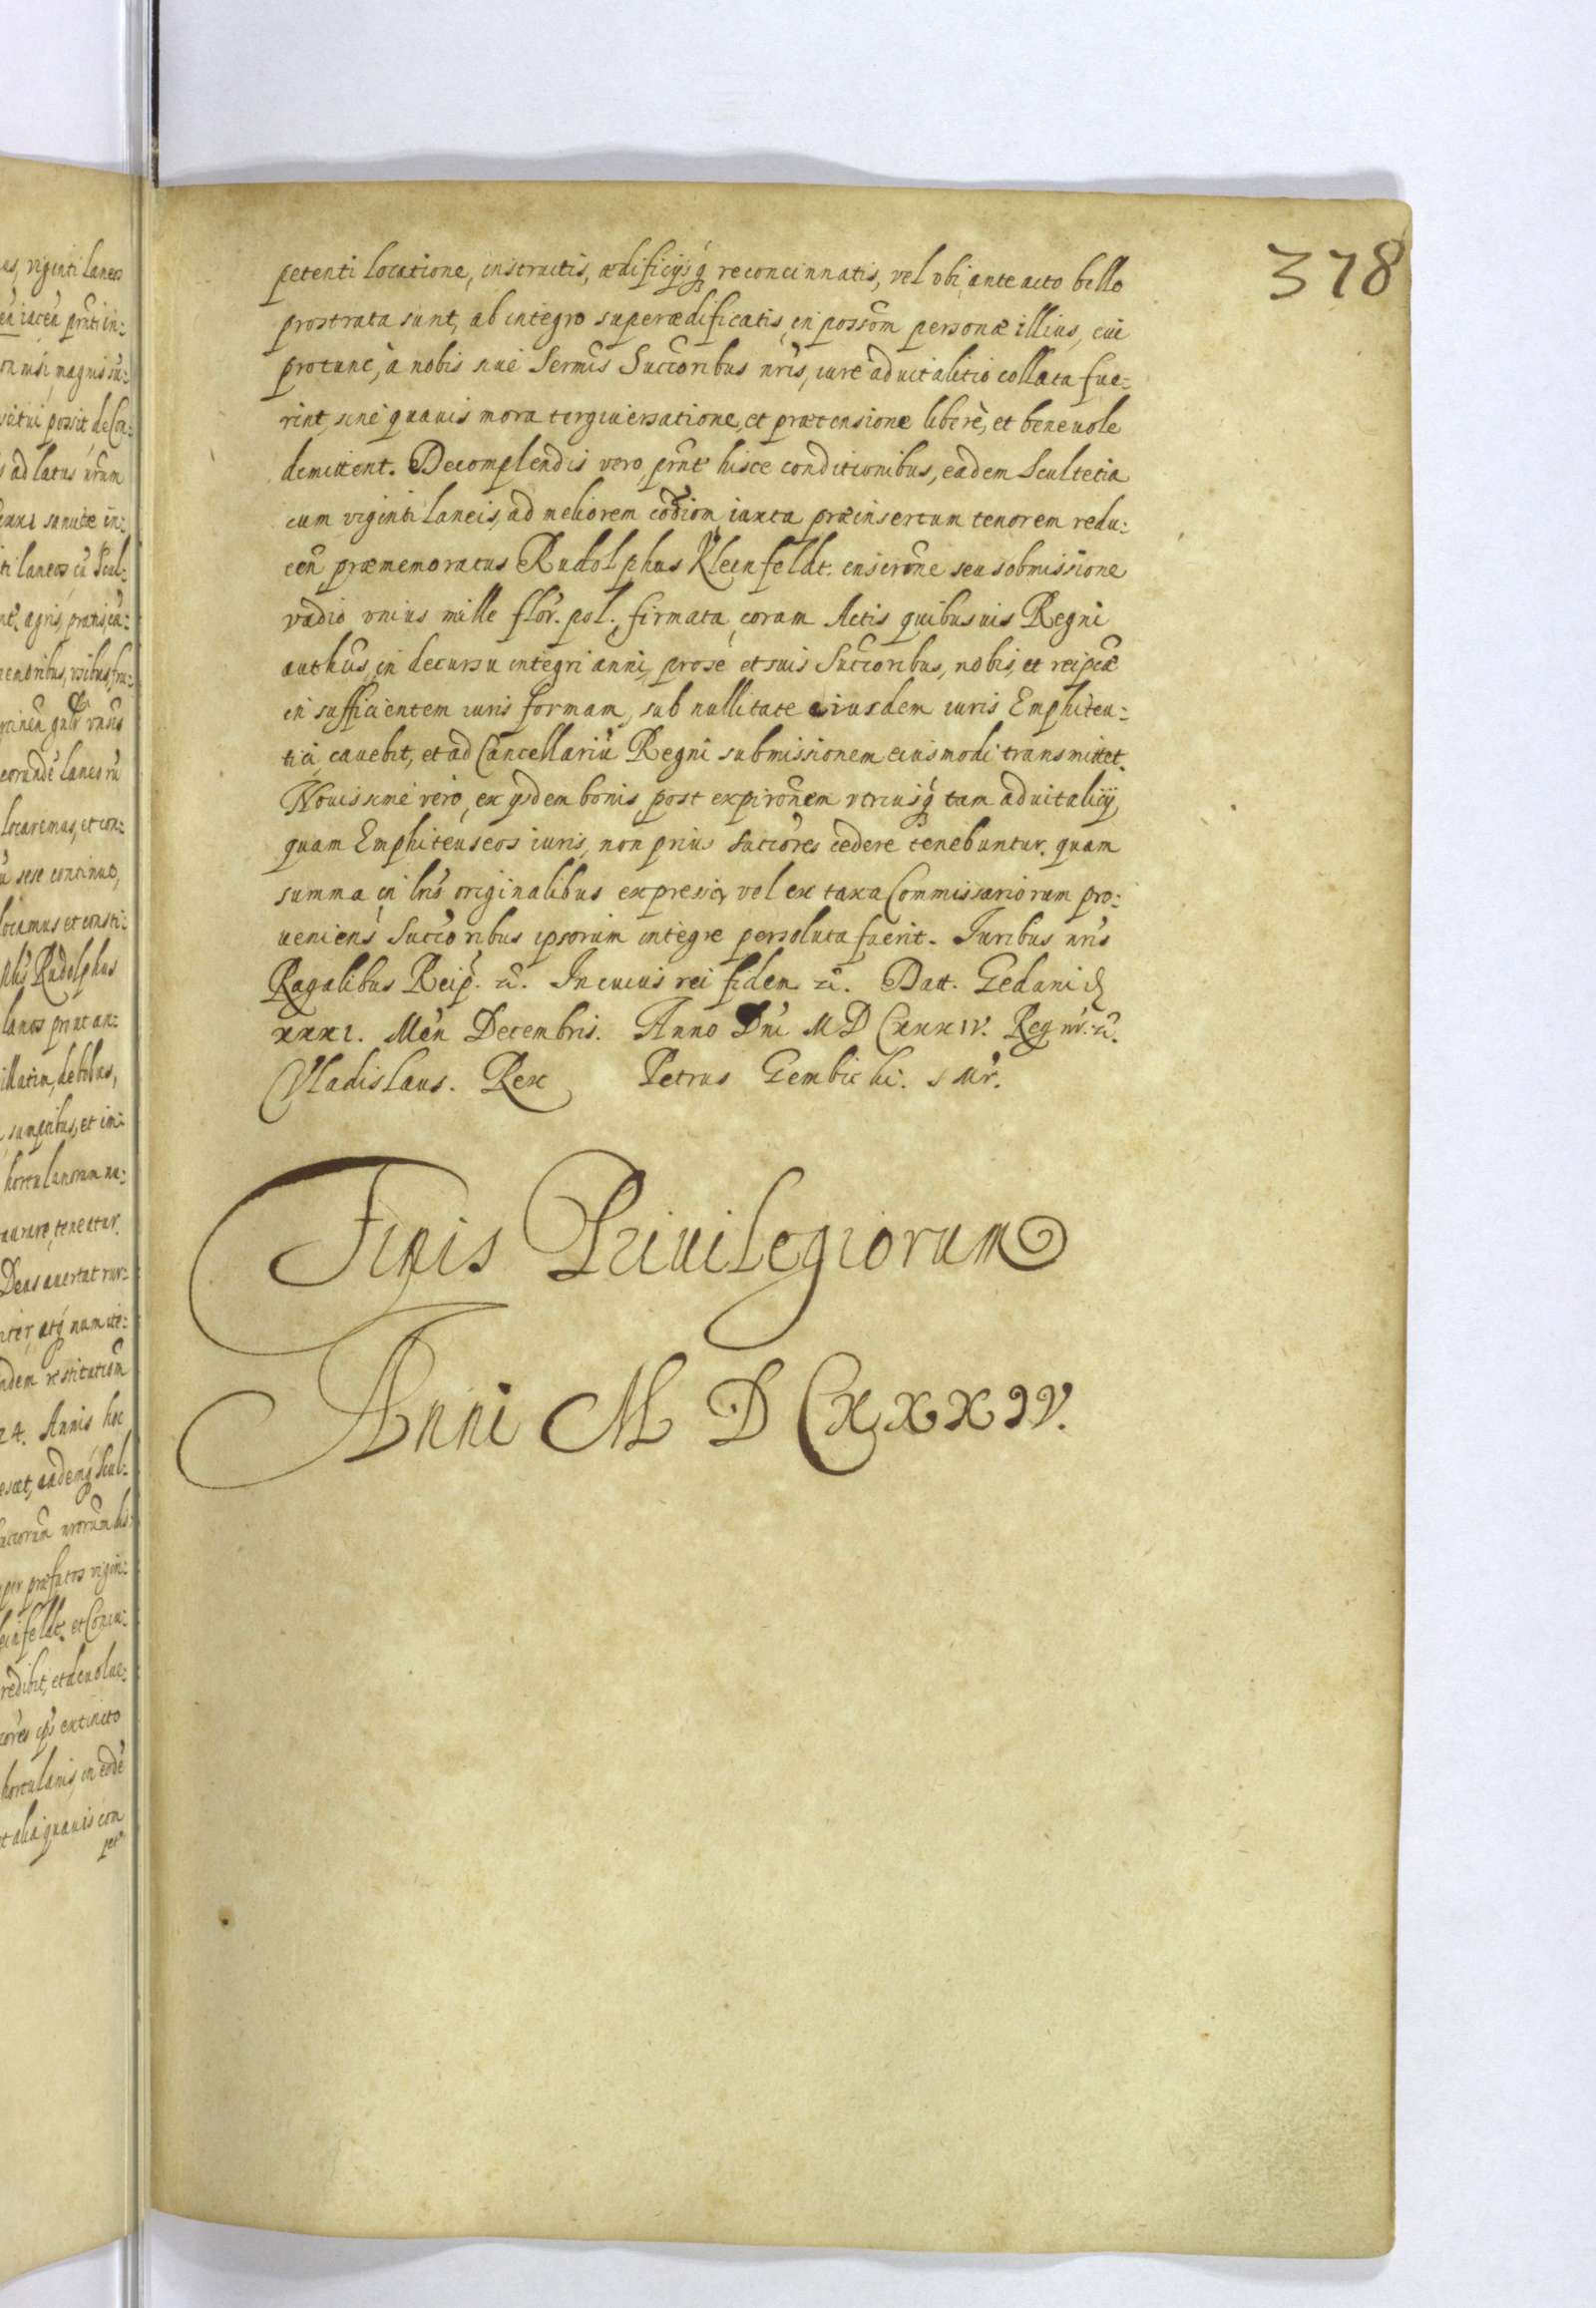 378
petenti locatione, instructis, ædificijsq́ reconcinnatis, vel vbi anteacto bello
prostrata sunt, ab integro superædificatis, in possom personæ illius, cui
protunc, à nobis siue Sermis Succoribus nris, iure aduitalitio collata fue:
rint, sine quauis mora tergiuersatione, et prætensione liberè, et beneuole
demittent. Decomplendis vero prnt hisce conditionibus, eadem Scultetia
cum viginti laneis, ad meliorem codiom iuxta præinsertum tenorem redu:
cen præmemoratus Rudolphus Kleinfeldt. inscrone seu sobmissione
vadio vnius mille flor. pol. firmata, coram Actis quibusuis Regni
authcis, in decursu integri anni, prose et suis Succoribus, nobis, et reipcæ
in sufficientem iuris formam, sub nullitate eiusdem iuris Emphiteu:
tici, cauebit, et ad Cancellariu Regni submissionem eiusmodi transmittet.
Nouissime vero, ex ysdem bonis, post expironem vtriusq́ tam aduitalicij,
quam Emphiteuseos iuris, non prius succores cedere tenebuntur. quam
summa in lris originalibus expressa, vel ex taxa Commissariorum pro:
ueniens Succoribus ipsorum integre persoluta fuerit. Iuribus nris
Ragalibus Reip. &. In cuius rei fidem &. Datt. Gedani d
xxxi. Men Decembris. Anno Dni M D Cxxxiv. Reg nr. &.
Vladislaus. Rex Petrus Gembicki. s Mr.
Finis Priuilegiorum
Anni M D CXXXIV.